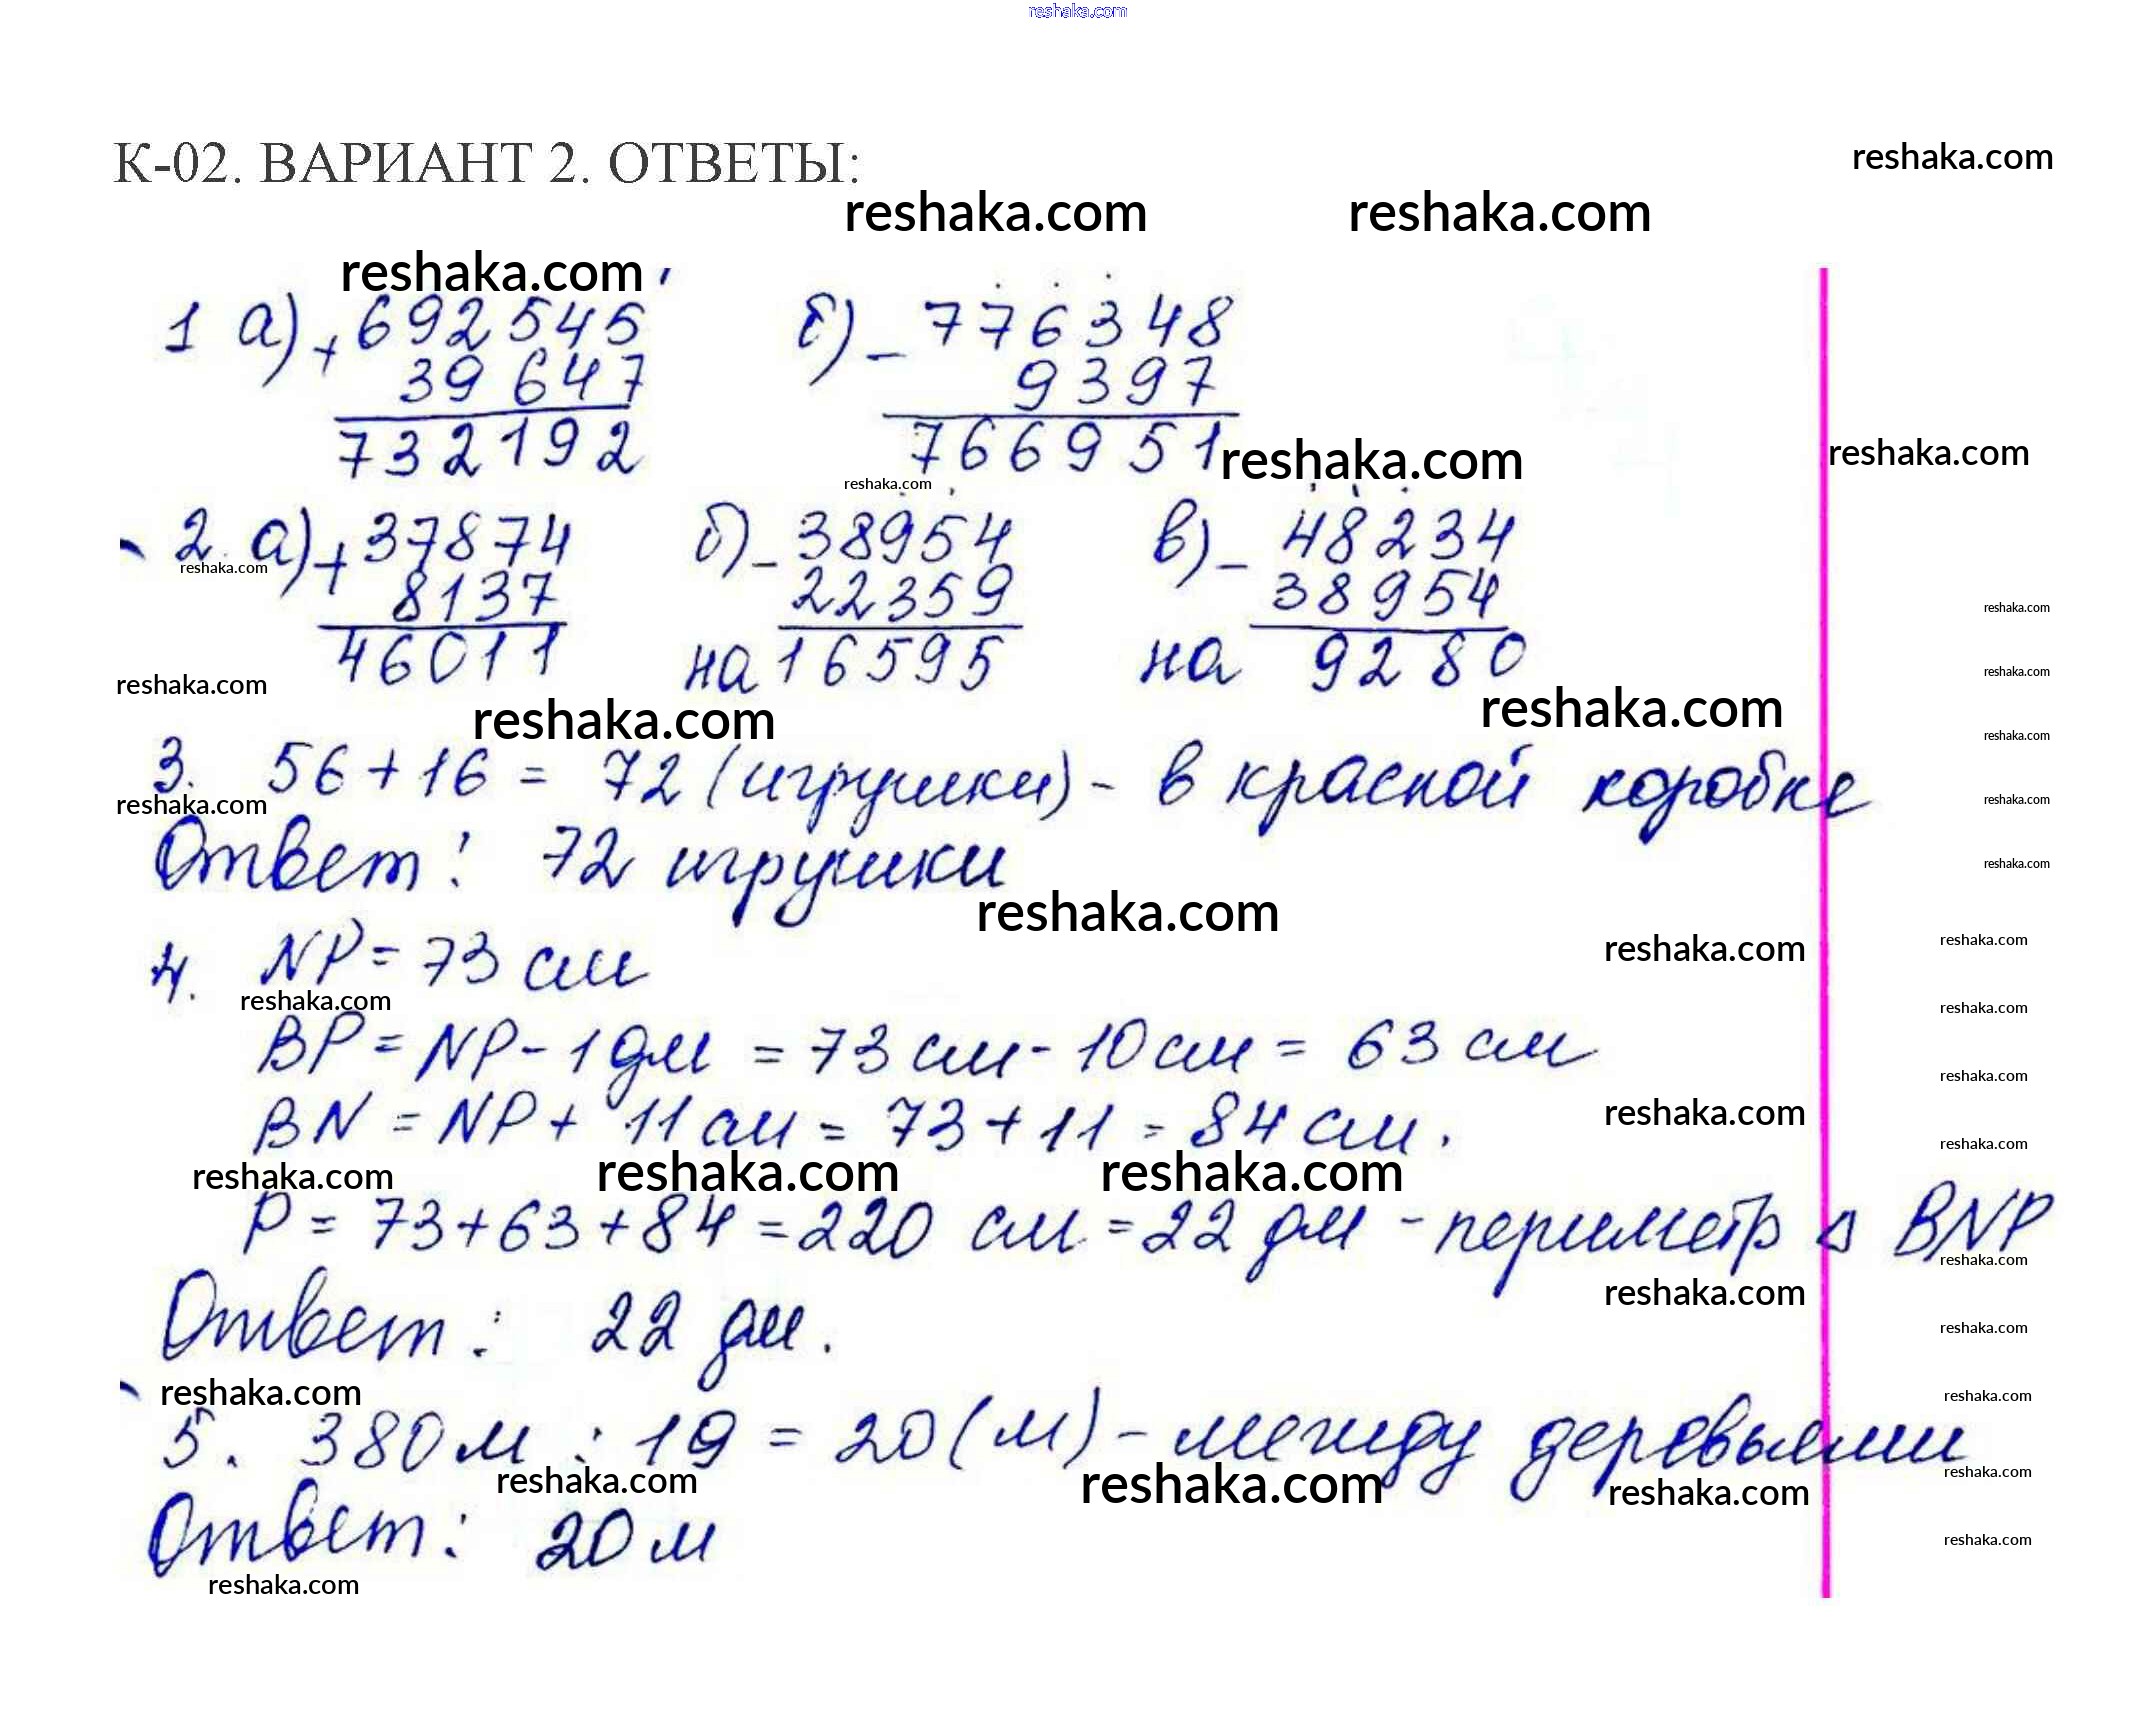 reshaka.com
К-02. ВАРИАНТ 2. ОТВЕТЫ:
reshaka.com
reshaka.com reshaka.com
reshaka.com
1 а) + 692545 б) - 776348
39647 9397
732192 766951
reshaka.com reshaka.com
reshaka.com
2. а) + 37874 б) - 38954 в) - 48234
reshaka.com
8137 22359 38954
reshaka.com
46011 на 16595 на 9280
reshaka.com
reshaka.com
reshaka.com reshaka.com
reshaka.com
3. 56 + 16 = 72 (игрушки) - в красной коробке
reshaka.com
reshaka.com
Ответ: 72 игрушки
reshaka.com
reshaka.com
reshaka.com
reshaka.com
4. NP = 73 см
reshaka.com
reshaka.com
BP = NP - 1 дм = 73 см - 10 см = 63 см
reshaka.com
BN = NP + 11 см = 73 + 11 = 84 см.
reshaka.com
reshaka.com
reshaka.com reshaka.com reshaka.com
P = 73 + 63 + 84 = 220 см = 22 дм - периметр △ BNP
reshaka.com
reshaka.com
Ответ: 22 дм.
reshaka.com
reshaka.com
reshaka.com
5. 380 м : 19 = 20 (м) - между деревьями
reshaka.com
reshaka.com reshaka.com reshaka.com
Ответ: 20 м
reshaka.com
reshaka.com